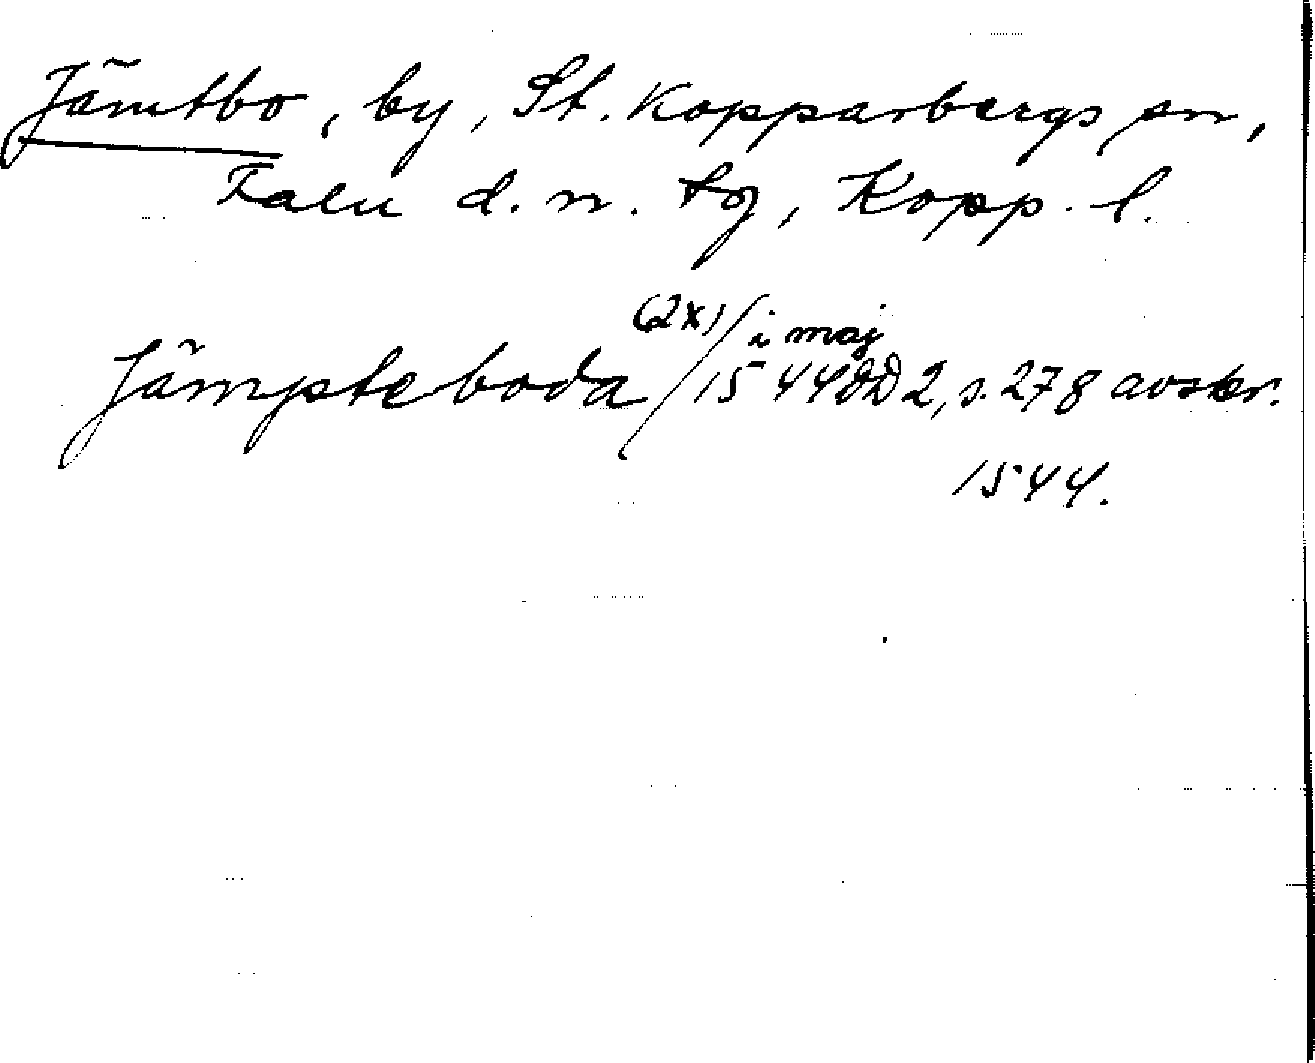 Jämtbo, by, St. Kopparbergs sn,
Falu d. n. tg, Kopp. l.
(2x) / i maj
Jämpteboda / 1544 DD 2, s. 278 avskr.
1544.